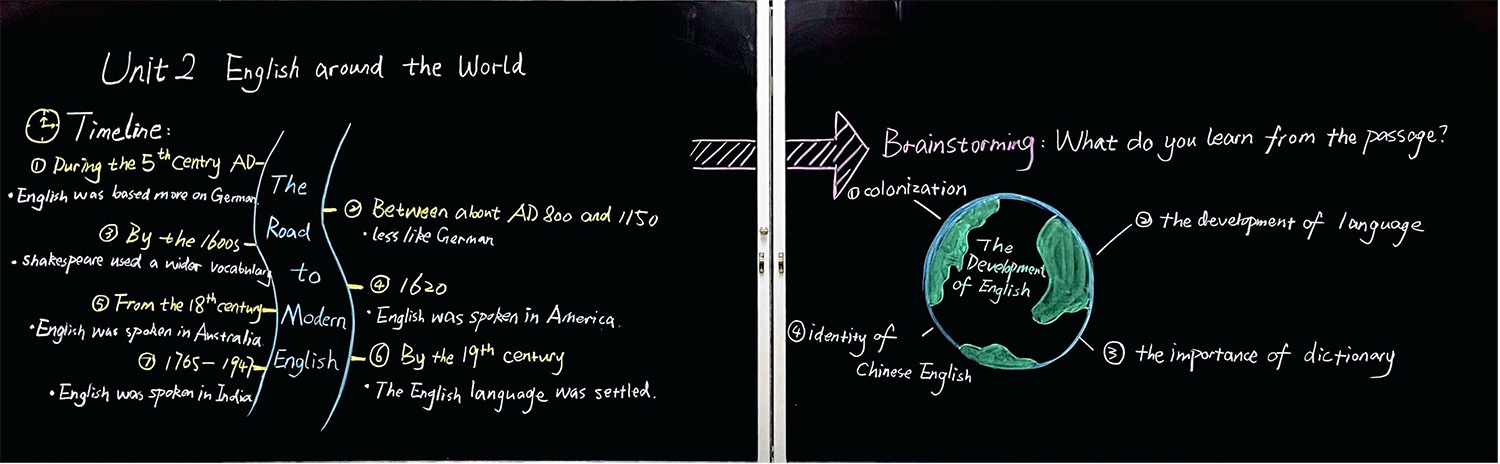 Unit 2 English around the World
Timeline:
① During the 5th centry AD
• English was based more on German.
The
Road
to
Modern
English
② Between about AD 800 and 1150
• less like German
③ By the 1600s
• Shakespeare used a wider vocabulary
④ 1620
• English was spoken in America.
⑤ From the 18th century
• English was spoken in Australia.
⑥ By the 19th century
• The English language was settled.
⑦ 1765-1947
• English was spoken in India
Brainstorming: What do you learn from the passage?
① colonization
② the development of language
The
Development
of English
③ the importance of dictionary
④ identity of
Chinese English